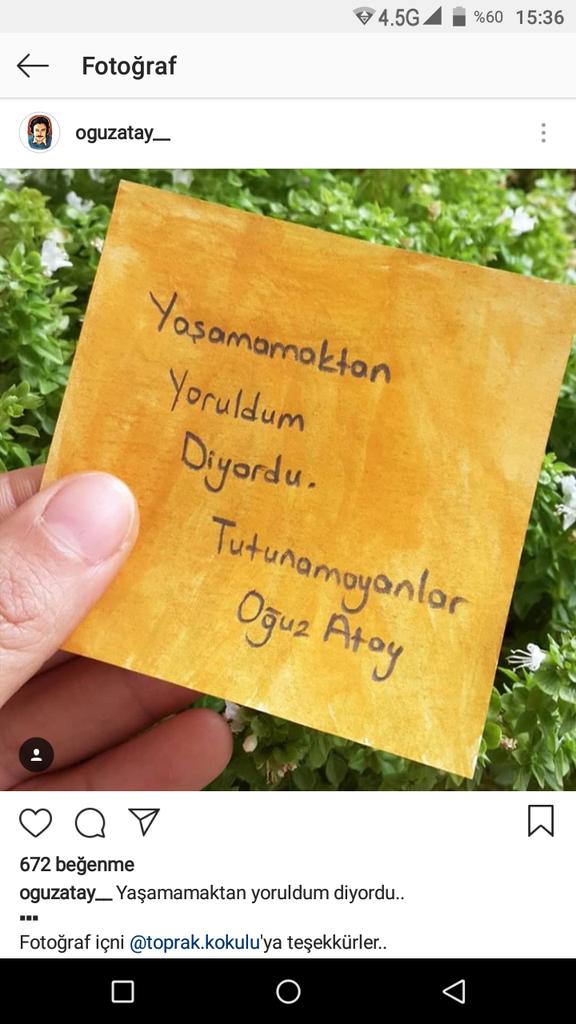 4.5G %60 15:36
Fotoğraf
oguzatay__
Yaşamamaktan
Yoruldum
Diyordu.
Tutunamayanlar
Oğuz Atay
672 beğenme
oguzatay__ Yaşamamaktan yoruldum diyordu..
▪▪▪
Fotoğraf içni @toprak.kokulu'ya teşekkürler..